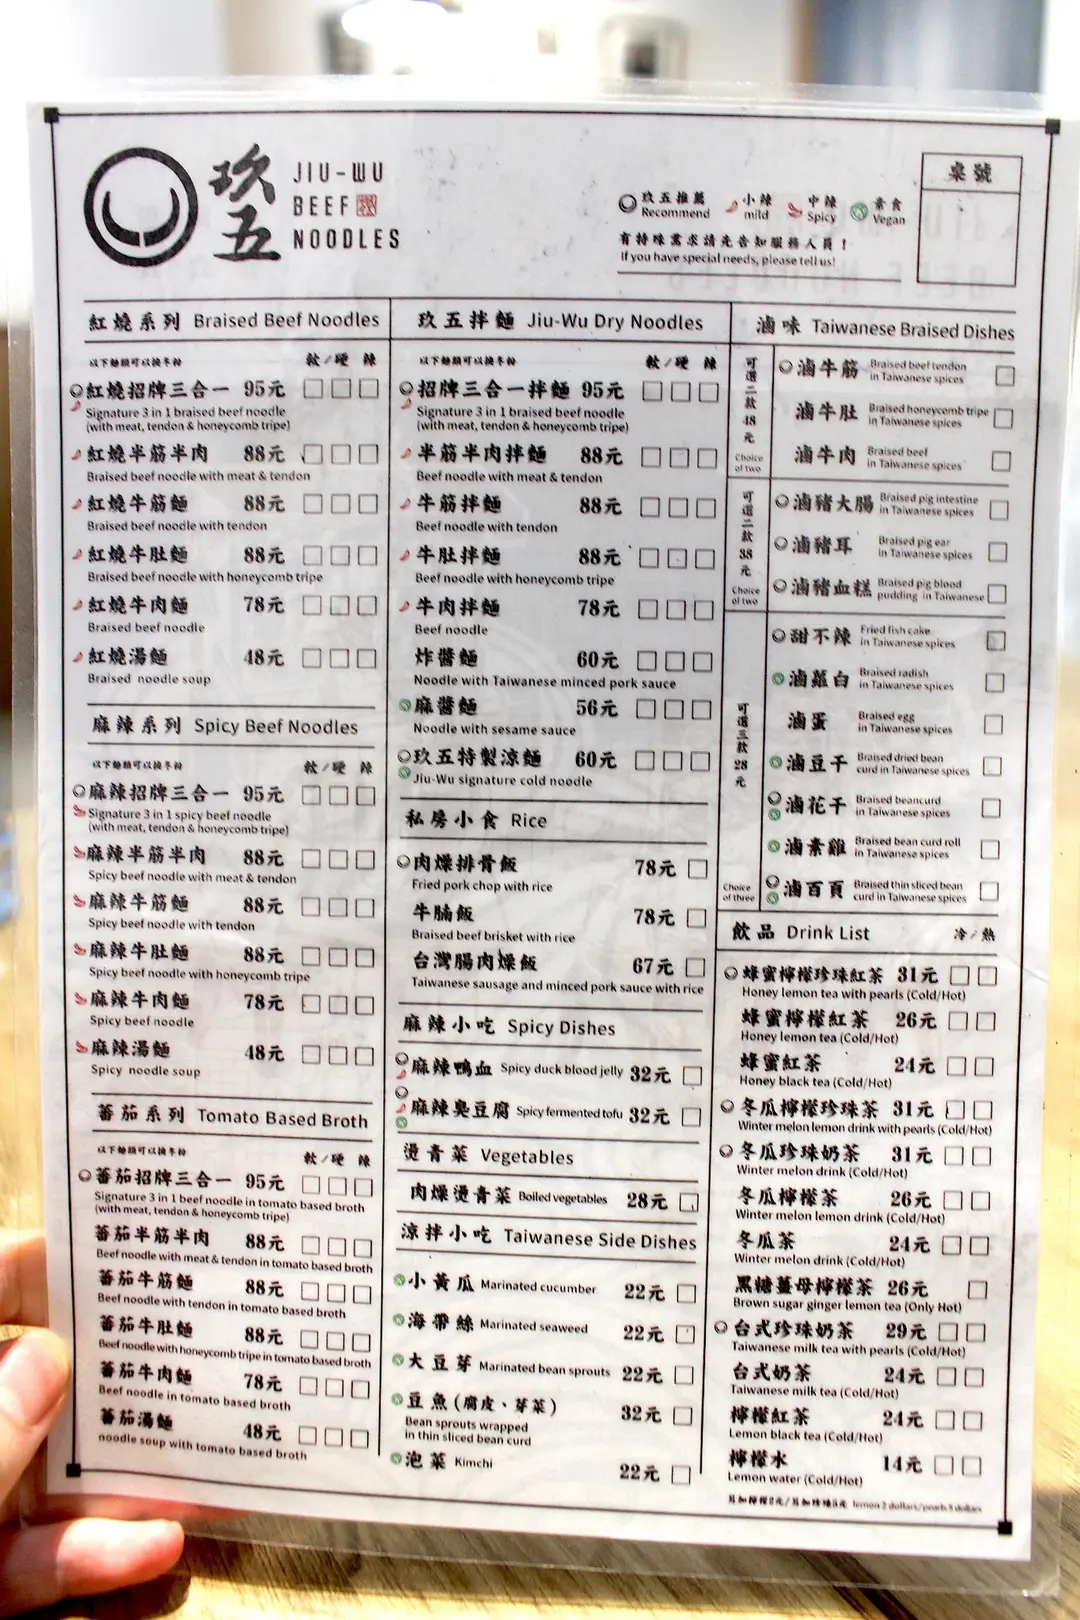 玖五
JIU-WU
BEEF
NOODLES
玖五推薦 小辣 中辣 素食
Recommend mild Spicy Vegan
有特殊需求請先告知服務人員！
If you have special needs, please tell us!
桌號
紅燒系列 Braised Beef Noodles
以下麵類可以換冬粉 軟／硬 辣
紅燒招牌三合一 95元
Signature 3 in 1 braised beef noodle
(with meat, tendon & honeycomb tripe)
紅燒半筋半肉 88元
Braised beef noodle with meat & tendon
紅燒牛筋麵 88元
Braised beef noodle with tendon
紅燒牛肚麵 88元
Braised beef noodle with honeycomb tripe
紅燒牛肉麵 78元
Braised beef noodle
紅燒湯麵 48元
Braised noodle soup
麻辣系列 Spicy Beef Noodles
以下麵類可以換冬粉 軟／硬 辣
麻辣招牌三合一 95元
Signature 3 in 1 spicy beef noodle
(with meat, tendon & honeycomb tripe)
麻辣半筋半肉 88元
Spicy beef noodle with meat & tendon
麻辣牛筋麵 88元
Spicy beef noodle with tendon
麻辣牛肚麵 88元
Spicy beef noodle with honeycomb tripe
麻辣牛肉麵 78元
Spicy beef noodle
麻辣湯麵 48元
Spicy noodle soup
蕃茄系列 Tomato Based Broth
以下麵類可以換冬粉 軟／硬 辣
蕃茄招牌三合一 95元
Signature 3 in 1 beef noodle in tomato based broth
(with meat, tendon & honeycomb tripe)
蕃茄半筋半肉 88元
Beef noodle with meat & tendon in tomato based broth
蕃茄牛筋麵 88元
Beef noodle with tendon in tomato based broth
蕃茄牛肚麵 88元
Beef noodle with honeycomb tripe in tomato based broth
蕃茄牛肉麵 78元
Beef noodle in tomato based broth
蕃茄湯麵 48元
noodle soup with tomato based broth
玖五拌麵 Jiu-Wu Dry Noodles
以下麵類可以換冬粉 軟／硬 辣
招牌三合一拌麵 95元
Signature 3 in 1 braised beef noodle
(with meat, tendon & honeycomb tripe)
半筋半肉拌麵 88元
Beef noodle with meat & tendon
牛筋拌麵 88元
Beef noodle with tendon
牛肚拌麵 88元
Beef noodle with honeycomb tripe
牛肉拌麵 78元
Beef noodle
炸醬麵 60元
Noodle with Taiwanese minced pork sauce
麻醬麵 56元
Noodle with sesame sauce
玖五特製涼麵 60元
Jiu-Wu signature cold noodle
私房小食 Rice
肉燥排骨飯 78元
Fried pork chop with rice
牛腩飯 78元
Braised beef brisket with rice
台灣腸肉燥飯 67元
Taiwanese sausage and minced pork sauce with rice
麻辣小吃 Spicy Dishes
麻辣鴨血 Spicy duck blood jelly 32元
麻辣臭豆腐 Spicy fermented tofu 32元
燙青菜 Vegetables
肉燥燙青菜 Boiled vegetables 28元
涼拌小吃 Taiwanese Side Dishes
小黃瓜 Marinated cucumber 22元
海帶絲 Marinated seaweed 22元
大豆芽 Marinated bean sprouts 22元
豆魚(腐皮、芽菜) 32元
Bean sprouts wrapped
in thin sliced bean curd
泡菜 Kimchi 22元
滷味 Taiwanese Braised Dishes
可選二款48元
Choice
of two
滷牛筋 Braised beef tendon
in Taiwanese spices
滷牛肚 Braised honeycomb tripe
in Taiwanese spices
滷牛肉 Braised beef
in Taiwanese spices
可選二款38元
Choice
of two
滷豬大腸 Braised pig intestine
in Taiwanese spices
滷豬耳 Braised pig ear
in Taiwanese spices
滷豬血糕 Braised pig blood
pudding in Taiwanese
可選三款28元
Choice
of three
甜不辣 Fried fish cake
in Taiwanese spices
滷蘿白 Braised radish
in Taiwanese spices
滷蛋 Braised egg
in Taiwanese spices
滷豆干 Braised dried bean
curd in Taiwanese spices
滷花干 Braised beancurd
in Taiwanese spices
滷素雞 Braised bean curd roll
in Taiwanese spices
滷百頁 Braised thin sliced bean
curd in Taiwanese spices
飲品 Drink List 冷／熱
蜂蜜檸檬珍珠紅茶 31元
Honey lemon tea with pearls (Cold/Hot)
蜂蜜檸檬紅茶 26元
Honey lemon tea (Cold/Hot)
蜂蜜紅茶 24元
Honey black tea (Cold/Hot)
冬瓜檸檬珍珠茶 31元
Winter melon lemon drink with pearls (Cold/Hot)
冬瓜珍珠奶茶 31元
Winter melon drink (Cold/Hot)
冬瓜檸檬茶 26元
Winter melon lemon drink (Cold/Hot)
冬瓜茶 24元
Winter melon drink (Cold/Hot)
黑糖薑母檸檬茶 26元
Brown sugar ginger lemon tea (Only Hot)
台式珍珠奶茶 29元
Taiwanese milk tea with pearls (Cold/Hot)
台式奶茶 24元
Taiwanese milk tea (Cold/Hot)
檸檬紅茶 24元
Lemon black tea (Cold/Hot)
檸檬水 14元
Lemon water (Cold/Hot)
另加檸檬2元/另加珍珠5元 lemon 2 dollars/pearls 5 dollars